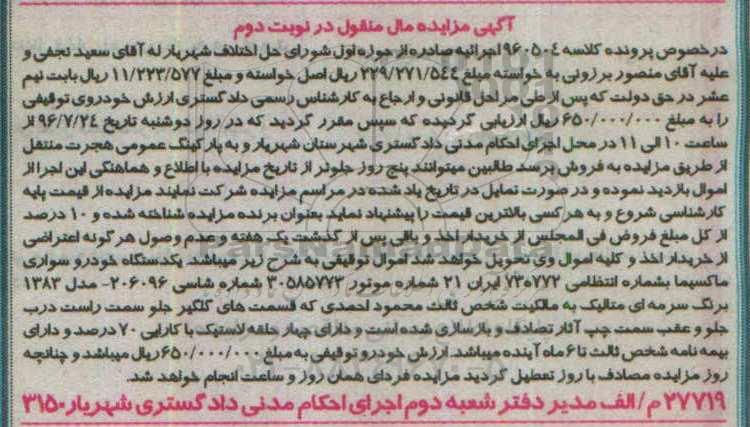 آگهی مزایده مال منقول در نوبت دوم
درخصوص پرونده کلاسه ۹۶۰۵۰۴ اجرائیه صادره از حوزه اول شورای حل اختلاف شهریار له آقای سعید نجفی و
علیه آقای منصور برزونی به خواسته مبلغ ۲۲۹/۲۷۱/۵۴۴ ریال اصل خواسته و مبلغ ۱۱/۲۲۳/۵۷۷ ریال بابت نیم
عشر در حق دولت که پس از طی مراحل قانونی و ارجاع به کارشناس رسمی دادگستری ارزش خودروی توقیفی
را به مبلغ ۶۵۰/۰۰۰/۰۰۰ ریال ارزیابی گردیده که سپس مقرر گردید که در روز دوشنبه تاریخ ۹۶/۷/۲۴ از
ساعت ۱۰ الی ۱۱ در محل اجرای احکام مدنی دادگستری شهرستان شهریار و به پارکینگ عمومی هجرت منتقل
از طریق مزایده به فروش برسد طالبین میتوانند پنج روز جلوتر از تاریخ مزایده با اطلاع و هماهنگی این اجرا از
اموال بازدید نموده و در صورت تمایل در تاریخ یاد شده در مراسم مزایده شرکت نمایند مزایده از قیمت پایه
کارشناسی شروع و به هر کسی بالاترین قیمت را پیشنهاد نماید بعنوان برنده مزایده شناخته شده و ۱۰ درصد
از کل مبلغ فروض فی المجلس از خریدار اخذ و باقی پس از گذشت یک هفته و عدم وصول هرگونه اعتراضی
از خریدار اخذ و کلیه اموال وی تحویل خواهد شد اموال توقیفی به شرح زیر میباشد. یکدستگاه خودرو سواری
ماکسیما بشماره انتظامی ۷۷۲ه۷۳ ایران ۲۱ شماره موتور ۳۰۵۸۵۷۷۳ شماره شاسی ۲۰۶۰۹۶- مدل ۱۳۸۳
برنگ سرمه ای متالیک به مالکیت شخص ثالث محمود احمدی که قسمت های گلگیر جلو سمت راست درب
جلو و عقب سمت چپ آثار تصادف و بازسازی شده است و دارای چهار حلقه لاستیک با کارایی ۷۰ درصد و دارای
بیمه نامه شخص ثالث تا ۶ ماه آینده میباشد. ارزش خودرو توقیفی به مبلغ ۶۵۰/۰۰۰/۰۰۰ ریال میباشد و چنانچه
روز مزایده مصادف با روز تعطیل گردید مزایده فردای همان روز و ساعت انجام خواهد شد.
۲۷۷۱۹ م/الف مدیر دفتر شعبه دوم اجرای احکام مدنی دادگستری شهریار ۳۱۵۰